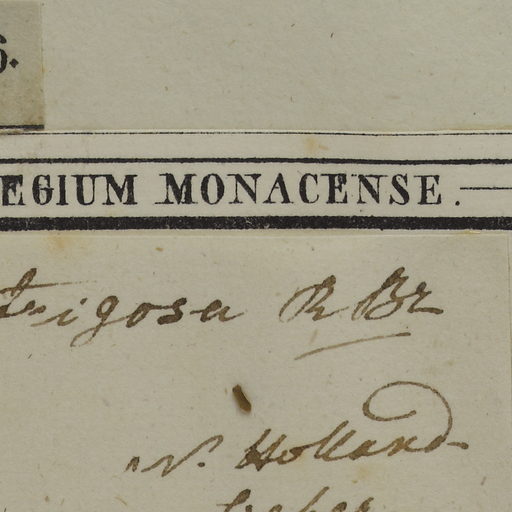 6.
EGIUM MONACENSE.
trigosa R Br
N. Holland
Sieber